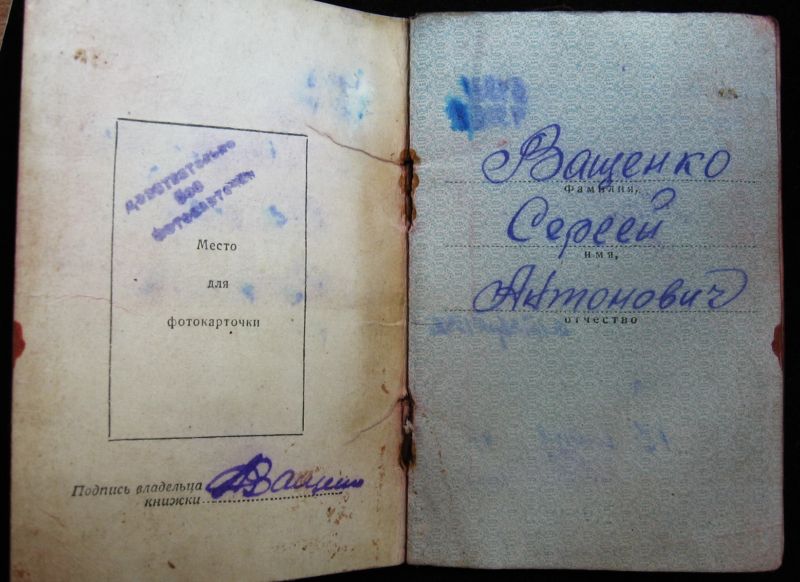 действительно
без
фотокарточки
Место
для
фотокарточки
Подпись владельца
книжки Ващенко
Ващенко
фамилия,
Сергей
имя,
Антонович
отчество